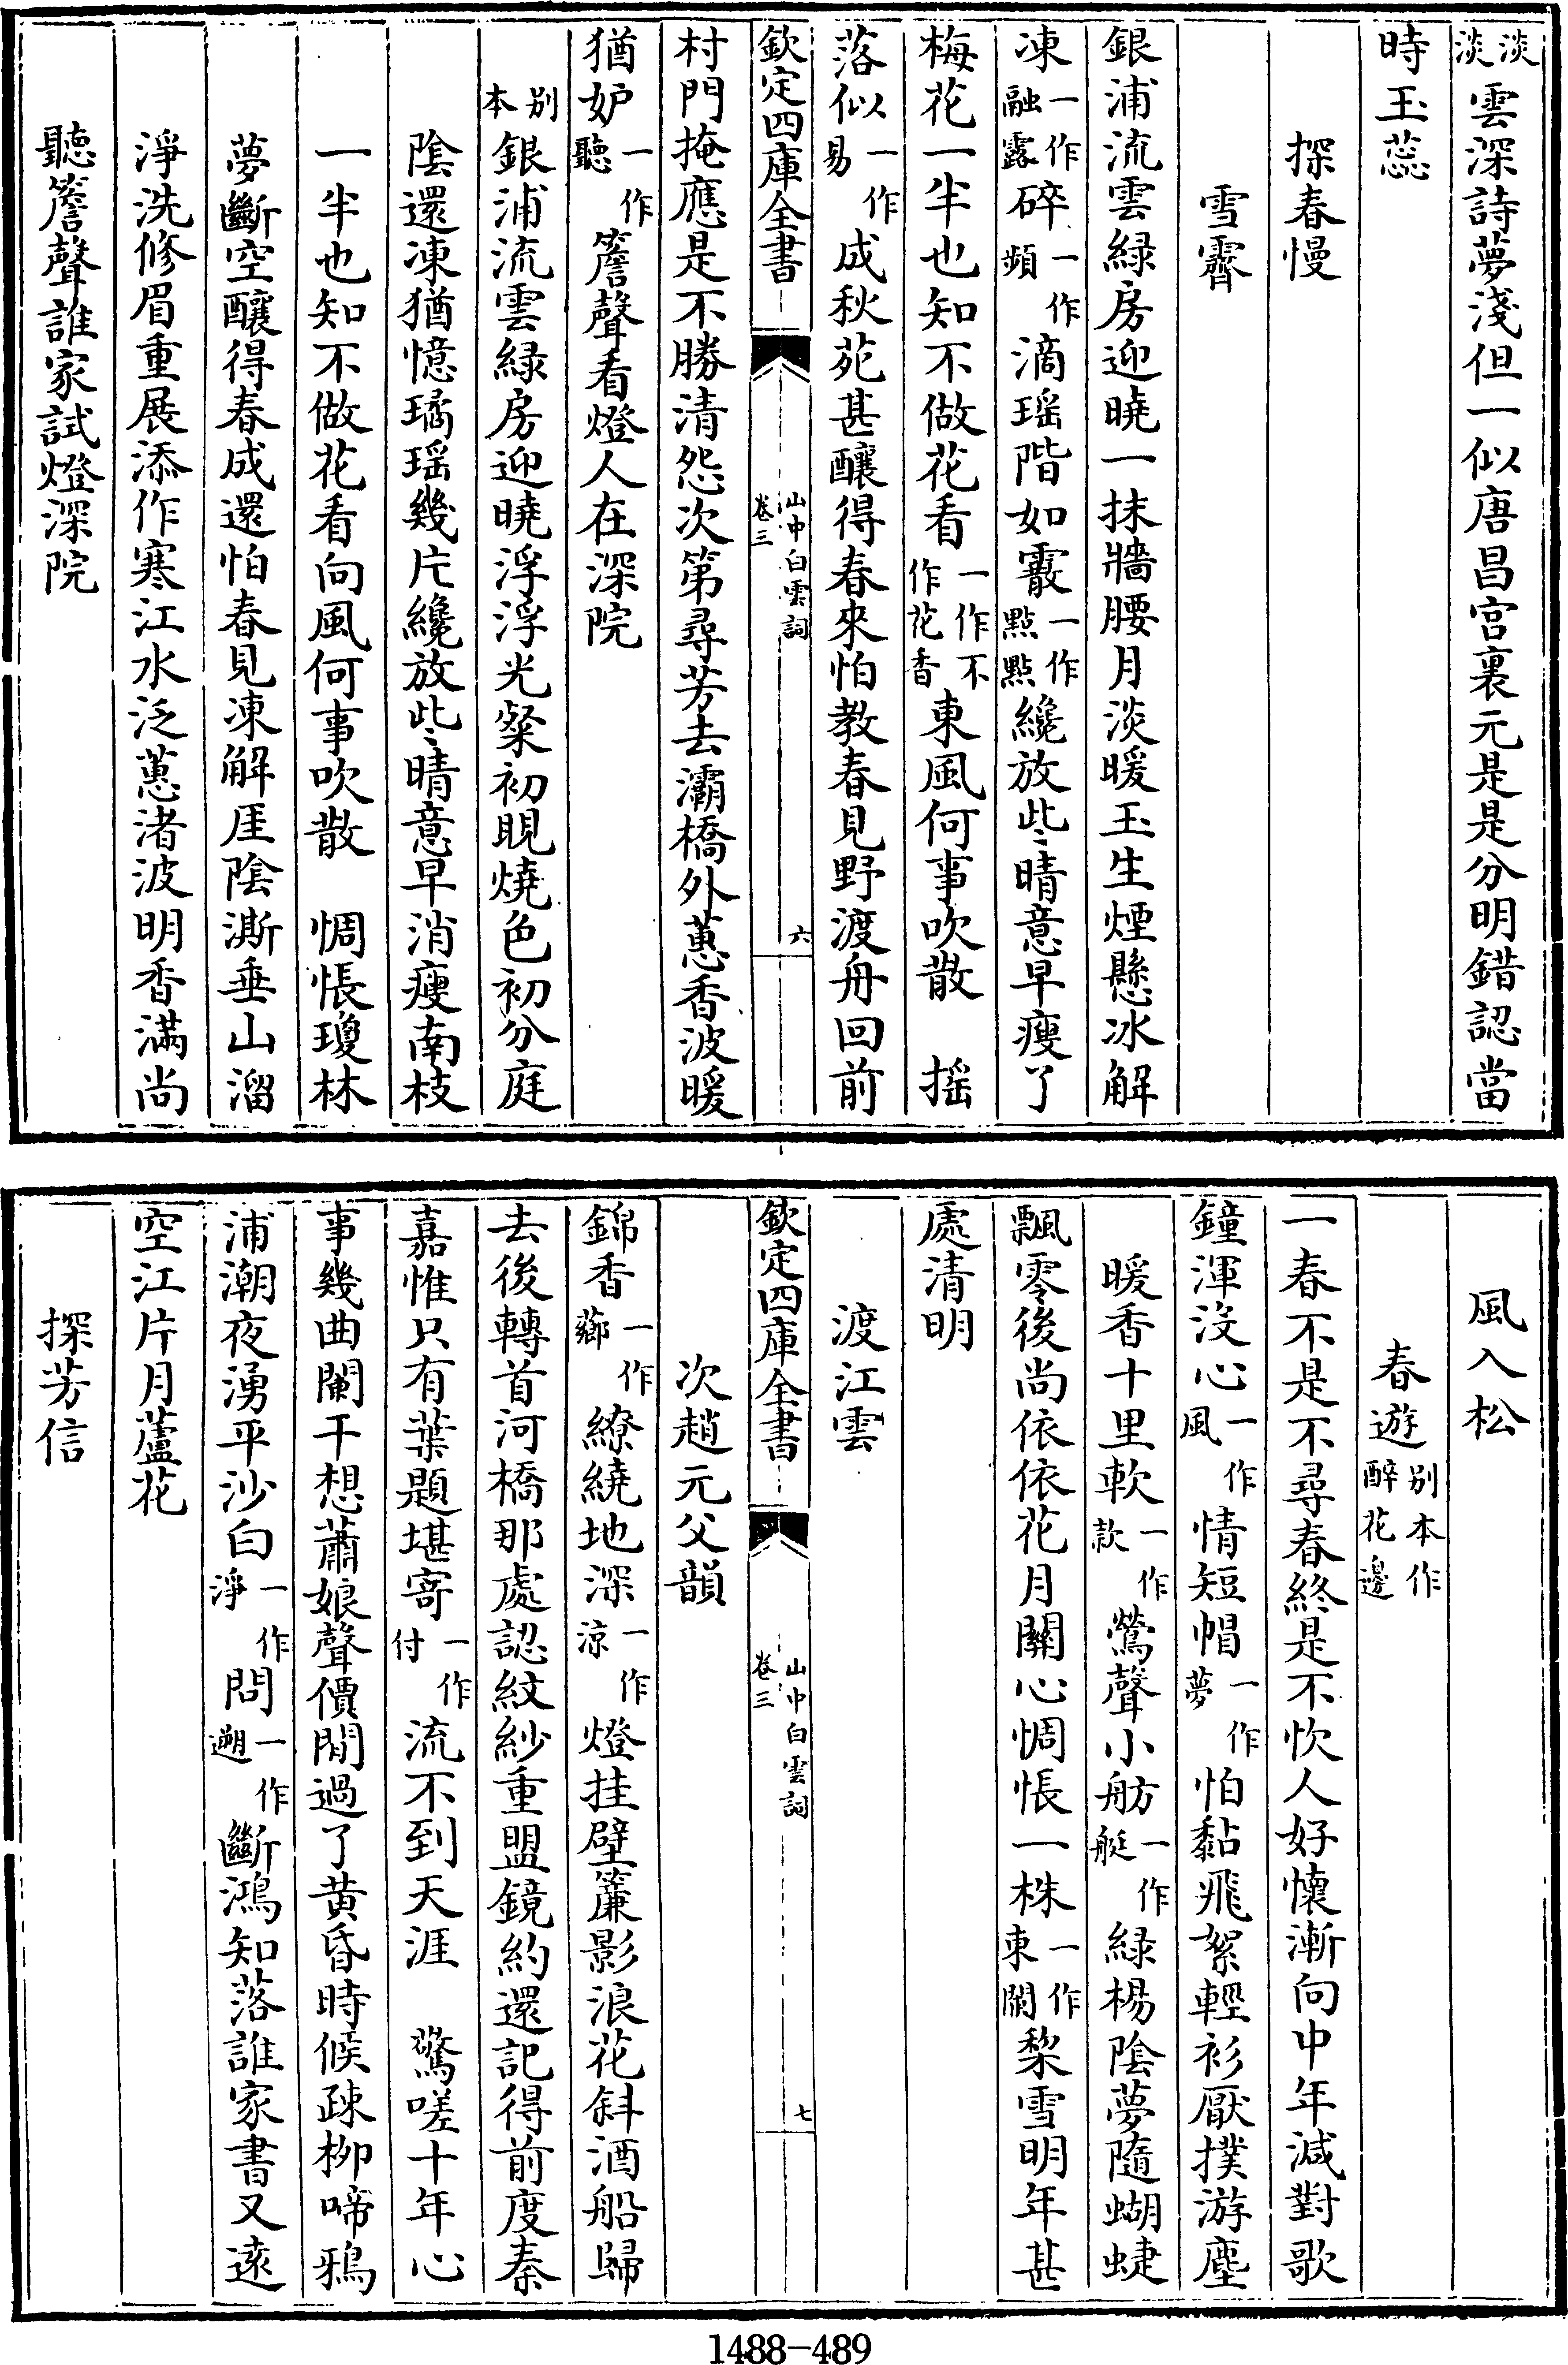 淡淡雲深詩夢淺但一似唐昌宫裏元是是分明錯認當
時玉蕊
探春慢
雪霽
銀浦流雲緑房迎曉一抹牆腰月淡暖玉生煙懸冰解
凍一作融露碎一作頻滴瑶階如霰一作點點纔放些晴意早瘦了
梅花一半也知不做花看一作不作花香東風何事吹散　揺
落似一作易成秋苑甚釀得春來怕教春見野渡舟回前
欽定四庫全書　山中白雲詞卷三　六
村門掩應是不勝清怨次第尋芳去灞橋外蕙香波暖
猶妒一作聽簷聲看燈人在深院
别本銀浦流雲緑房迎曉浮浮光粲初晛燒色初分庭
陰還凍猶憶璚瑶幾片纔放些晴意早消瘦南枝
一半也知不做花看向風何事吹散　惆悵瓊林
夢斷空釀得春成還怕春見凍解厓陰澌垂山溜
淨洗修眉重展添作寒江水泛蕙渚波明香滿尚
聽簷聲誰家試燈深院
風入松
春遊别本作醉花邊
一春不是不尋春終是不忺人好懷漸向中年減對歌
鐘渾没心一作風情短帽一作夢怕黏飛絮輕衫厭撲游塵
暖香十里軟一作款鶯聲小舫一作艇緑楊陰夢隨蝴蜨
飄零後尚依依花月關心惆悵一株一作東闌棃雪明年甚
處清明
渡江雲
欽定四庫全書　山中白雲詞卷三　七
次趙元父韻
錦香一作薌繚繞地深一作涼燈挂壁簾影浪花斜酒船歸
去後轉首河橋那處認紋紗重盟鏡約還記得前度秦
嘉惟只有葉題堪寄一作付流不到天涯　驚嗟十年心
事幾曲闌干想蕭娘聲價閒過了黄昏時候疎柳啼鴉
浦潮夜湧平沙白一作淨問一作遡斷鴻知落誰家書又遠
空江片月蘆花
探芳信
1488-489